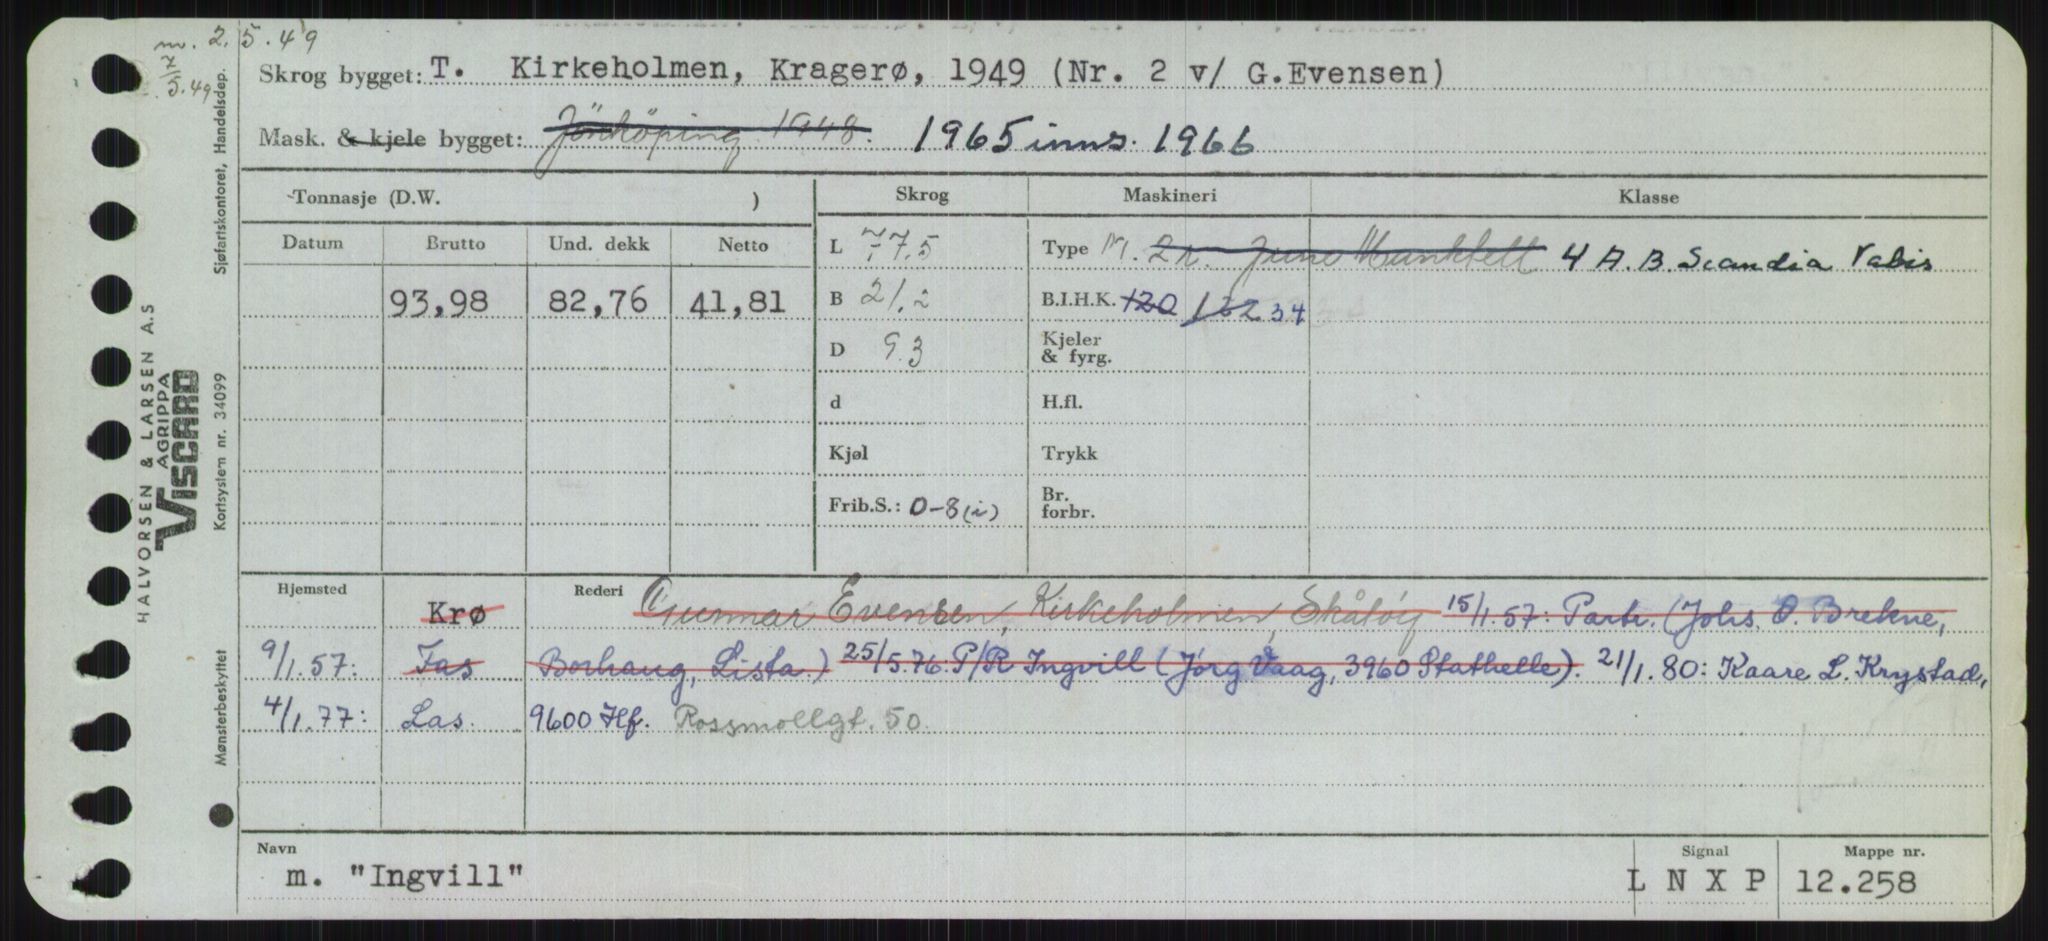 m. 2.5.49
7/5.49
Skrog bygget: T. Kirkeholmen, Kragerø, 1949 (Nr. 2 v/ G.Evensen)
Mask. & kjele bygget: Jönköping 1948. 1965 inns. 1966
Tonnasje (D.W. )
Skrog
Maskineri
Klasse
Datum
Brutto
Und. dekk
Netto
93,98
82,76
41,81
L 77.5
B 21.2
D 9.3
d
Kjøl
Frib.S.: 0-8(i)
Type M. 2 June Munktell 4 A.B. Scandia Vabis
B.I.H.K. 120 132 34
Kjeler
& fyrg.
H.fl.
Trykk
Br.
forbr.
Hjemsted Krø Rederi Gunnar Evensen, Kirkeholmen, Skåtøy 15/1.57: Partr. (Johs. O. Brekne,
9/1.57: Fas Borhaug, Lista.) 25/5.76: P/R Ingvill (Jörg Vaag, 3960 Stathelle). 21/1.80: Kaare L. Krystad,
4/1.77: Las. 9600 Hf. Rossmollgt. 50.
Navn
m. "Ingvill"
Signal
L N X P
Mappe nr.
12.258
HALVORSEN & LARSEN A.S
AGRIPPA
VISCARD
Mønsterbeskyttet Kortsystem nr. 34099 Sjøfartskontoret, Handelsdep.